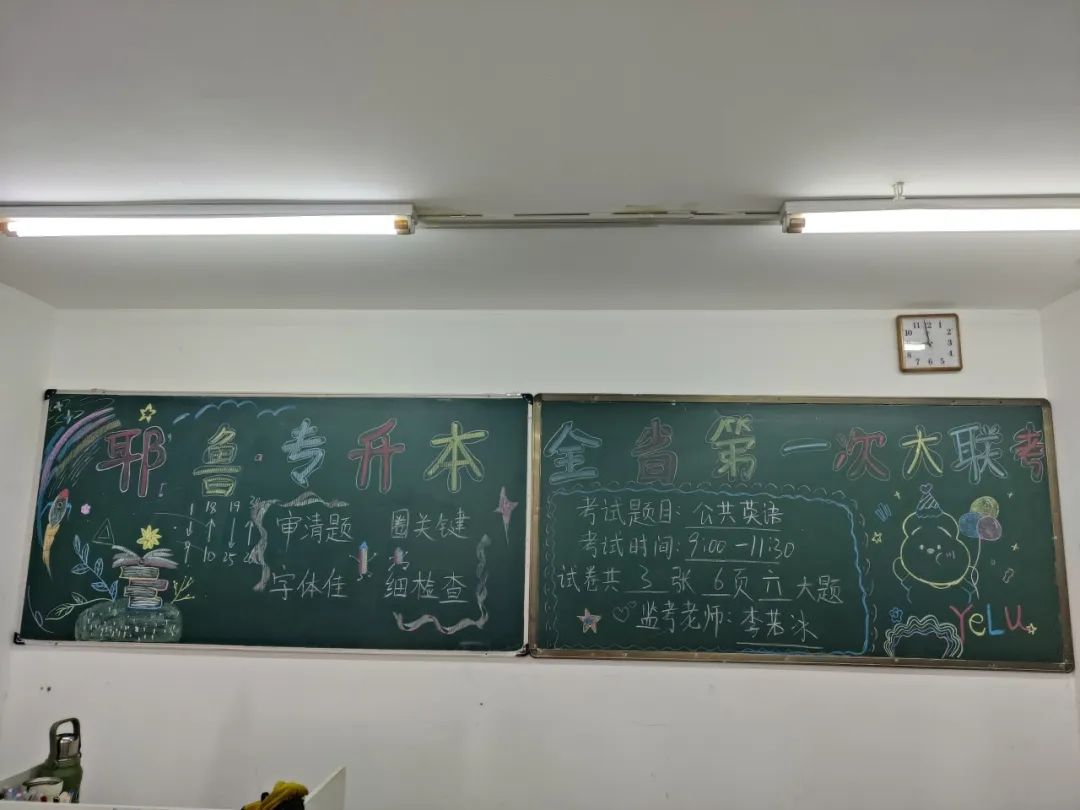 耶鲁·专升本
1 18 19
9 10 25
审清题 圈关键
字体佳 细检查
全省第一次大联考
考试题目: 公共英语
考试时间: 9:00-11:30
试卷共 3 张 6页 六 大题
监考老师: 李若冰
YeLU
11 12 1
10 2
3
8 4
7 6 5